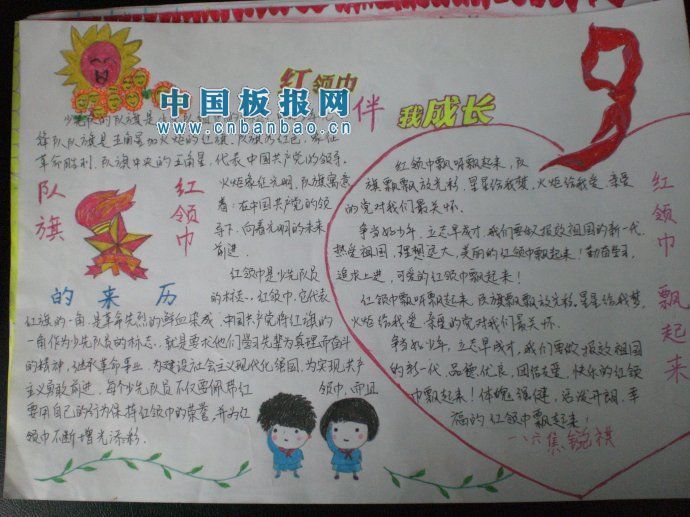 红领巾
伴
我成长
中国板报网
www.cnbanbao.cn
少先队的队旗是
队队旗是五角星加火炬的红旗。队旗为红色，象征
革命胜利，队旗中央的五角星，代表中国共产党的领导，
火炬象征光明，队旗寓意
着：在中国共产党的领
导下，向着光明的未来
前进。
队旗
红领巾
的来历
红领巾是少先队员
的标志，红领巾，它代表
红旗的一角，是革命先烈的鲜血染成，中国共产党将红旗的
一角作为少先队员的标志，就是要求他们学习先辈为真理而奋斗
的精神，继承革命事业，为建设社会主义现代化强国，为实现共产
主义勇敢前进，每个少先队员不仅要佩带红领巾，而且
要用自己的行为保持红领巾的荣誉，并为红
领巾不断增光添彩。
红领巾飘呀飘起来，队
旗飘飘放光彩，星星给我梦，火炬给我爱，亲爱
的党对我们最关怀。
争当好少年，立志早成才，我们要做报效祖国的新一代，
热爱祖国，理想远大，美丽的红领巾飘起来！勤奋学习，
追求上进，可爱的红领巾飘起来！
红领巾飘呀飘起来，队旗飘飘放光彩，星星给我梦，
火炬给我爱，亲爱的党对我们最关怀
争当好少年，立志早成才，我们要做报效祖国
的新一代，品德优良，团结友爱，快乐的红领
巾飘起来！体魄强健，活泼开朗，幸
福的红领巾飘起来！
红领巾飘起来
一、六集锐祺